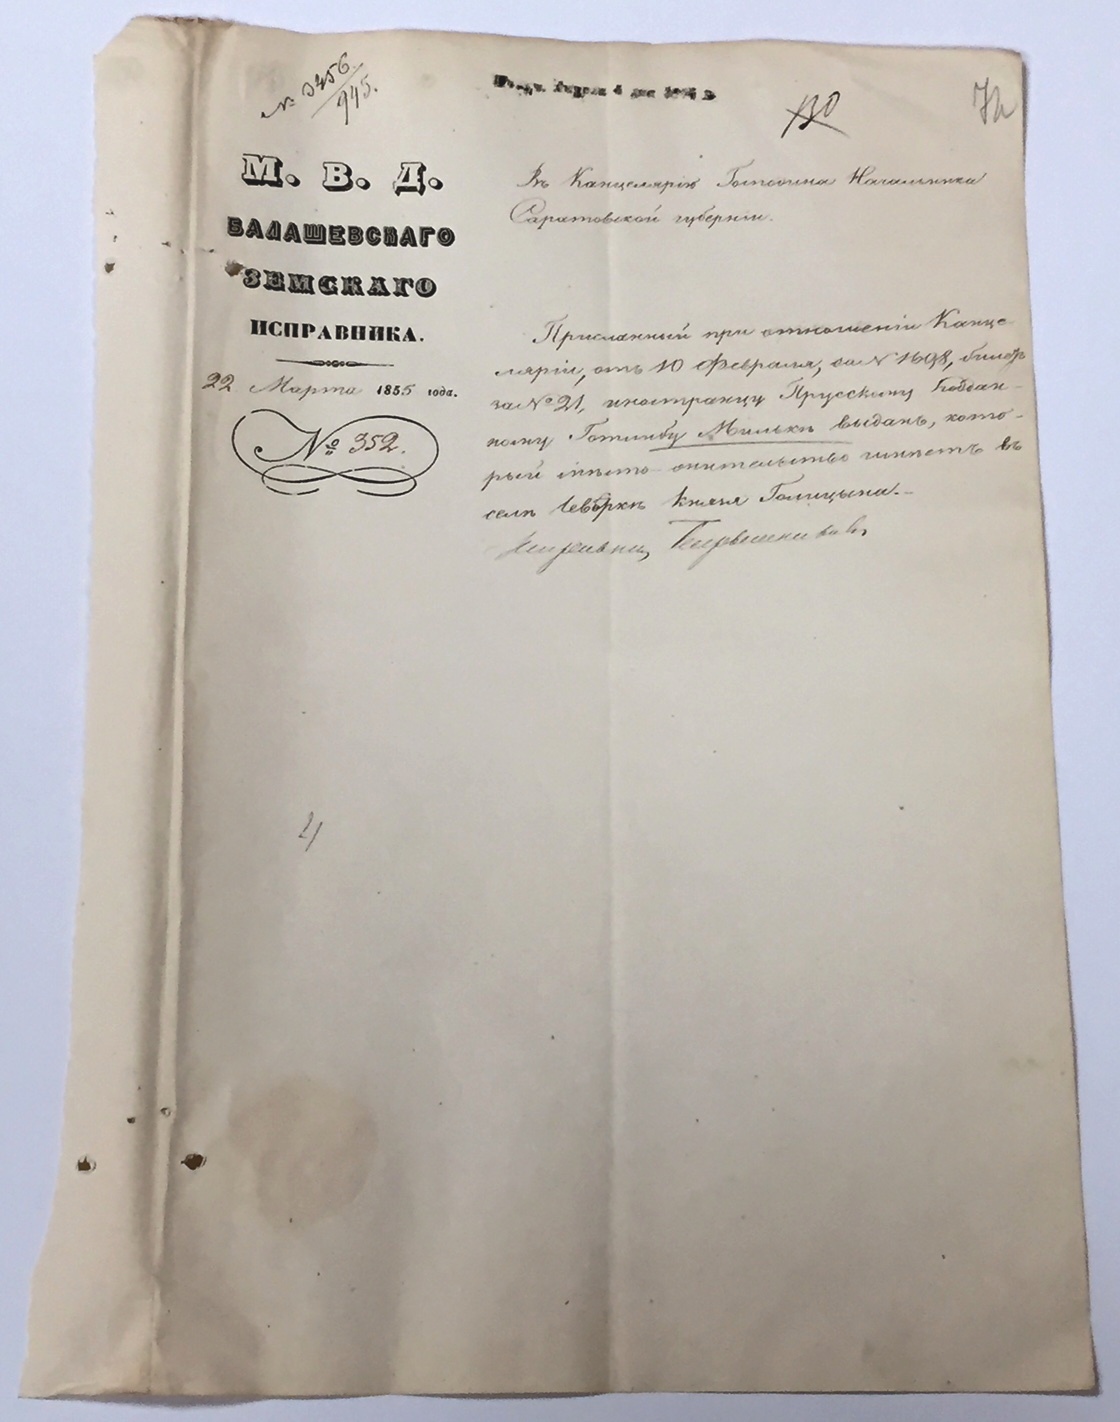 № 3456/945.
Апреля 4 дня
130
72
М. В. Д.
БАЛАШЕВСКАГО
ЗЕМСКАГО
ИСПРАВНИКА.
22 Марта 1855 года.
№ 352.
Въ Канцелярію Господина Начальника
Саратовской губерніи.
Присланный при отношеніи Канце-
ляріи, отъ 10 Февраля, за № 1698, билетъ
за № 21, иностранцу Прусскому Поддан-
ному Готлибу Мильке выданъ, кото-
рый мѣсто жительство имѣетъ въ
селѣ Князя Голицына.
Исправникъ